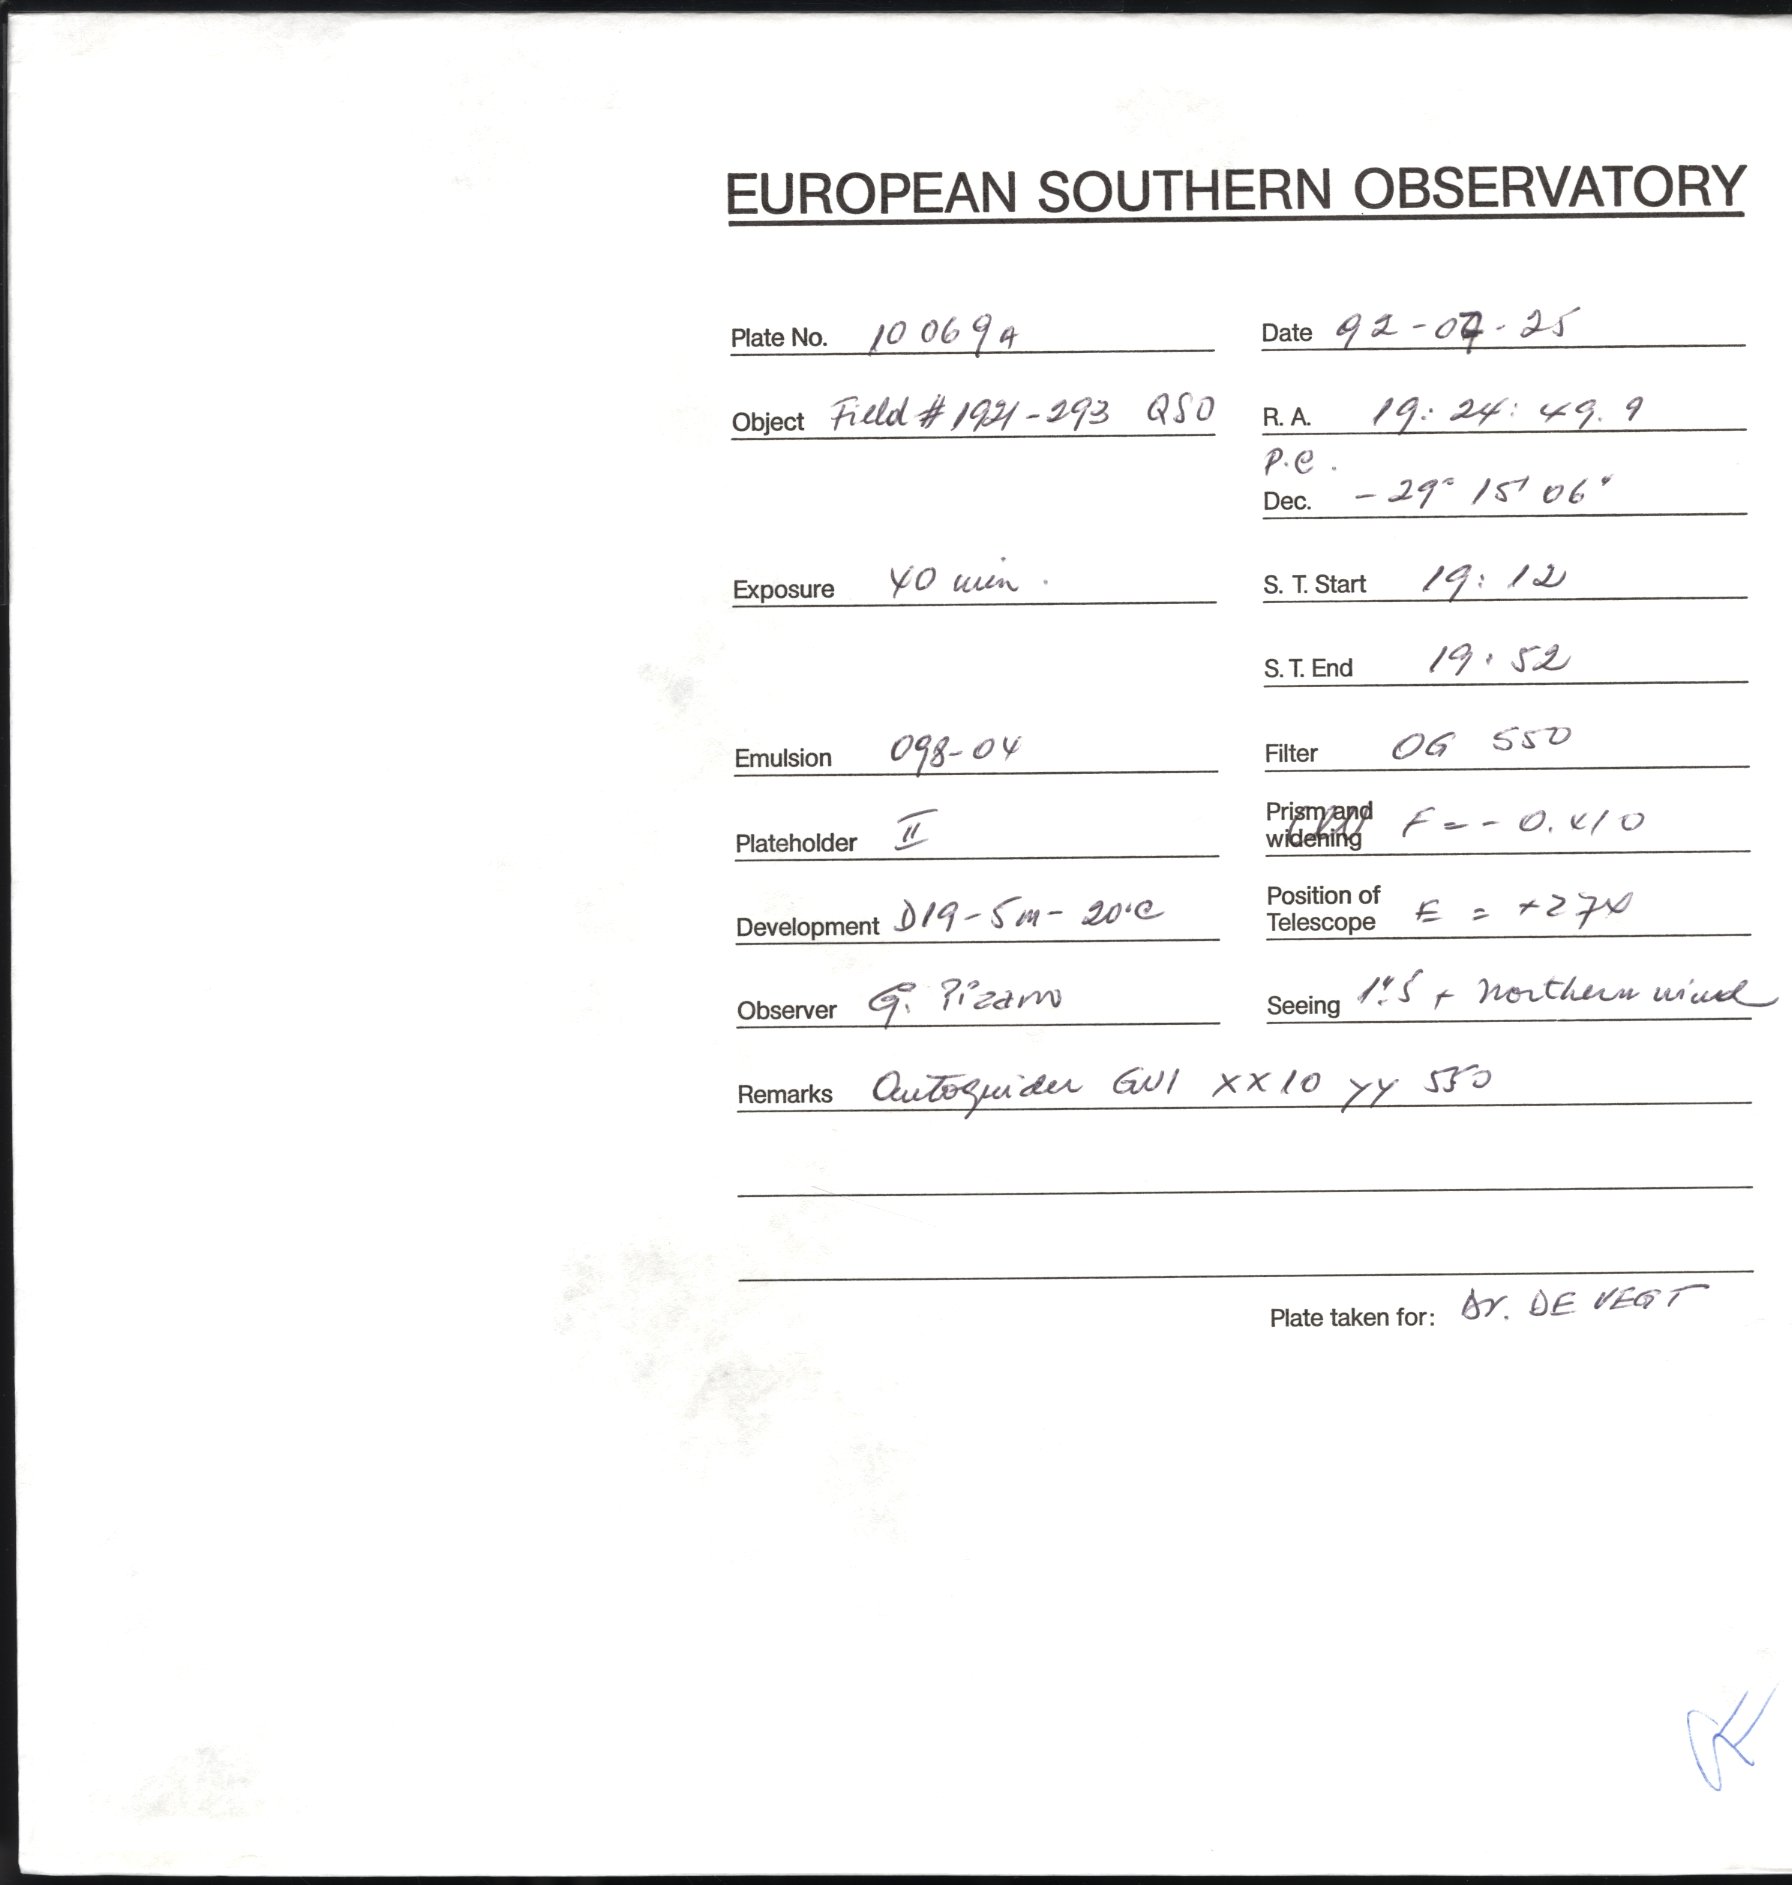 EUROPEAN SOUTHERN OBSERVATORY
Plate No. 10 069A Date 92-07-25
Object Field # 1921-293 QSO R. A. 19: 24: 49. 9
P.C.
Dec. -29° 15' 06"
Exposure 40 min. S. T. Start 19: 12
S. T. End 19: 52
Emulsion 098-04 Filter OG 550
Plateholder II Prism and widening F = - 0.410
Development D19-5m-20°C Position of Telescope E = +274
Observer G. Pizarro Seeing 1".5 + Northern wind
Remarks Autoguider GV1 XX10 YY 550
Plate taken for: Dr. DE VEGT